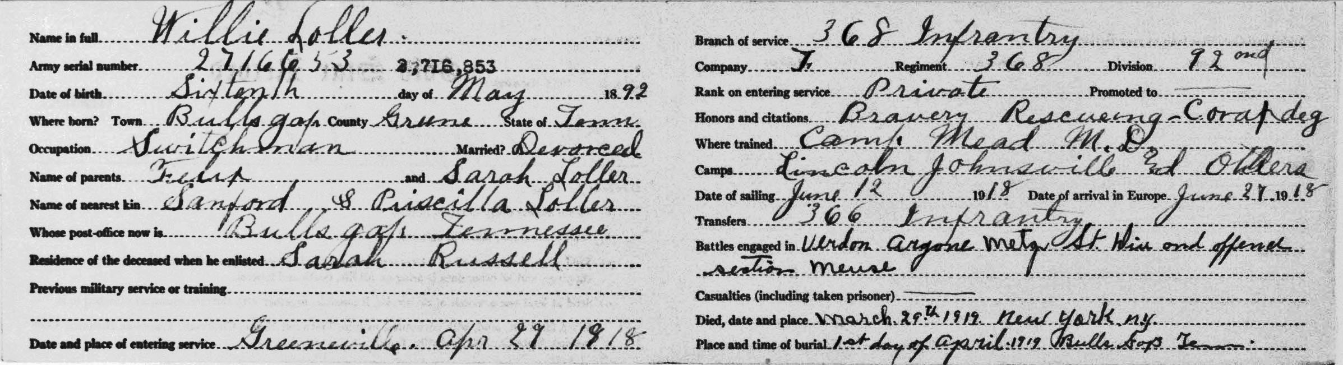 Name in full Willie Loller.
Army serial number 2716653 2,716,853
Date of birth Sixtenth day of May 1892
Where born? Town Bullsgap County Greene State of Tenn
Occupation Switchman Married? Devorced
Name of parents and Sarah Loller
Name of nearest kin Sanford & Priscilla Loller
Whose post-office now is Bullsgap Tennessee
Residence of the deceased when he enlisted Sarah Russell
Previous military service or training
Date and place of entering service Greeneville. Apr 27 1918
Branch of service 368 Infrantry
Company F. Regiment 368 Division 92nd
Rank on entering service Private Promoted to
Honors and citations Bravery Rescueing-Comrad
Where trained Camp Mead M.D
Camps Lincoln Johnsville and Others
Date of sailing June 12 1918 Date of arrival in Europe June 27 1918
Transfers 366 Infrantry
Battles engaged in Verdon Argone Metz St and
section Meuse
Casualties (including taken prisoner)
Died, date and place March 29th 1919 New York NY.
Place and time of burial 1st day of April 1919 Bulls Gap Tenn.